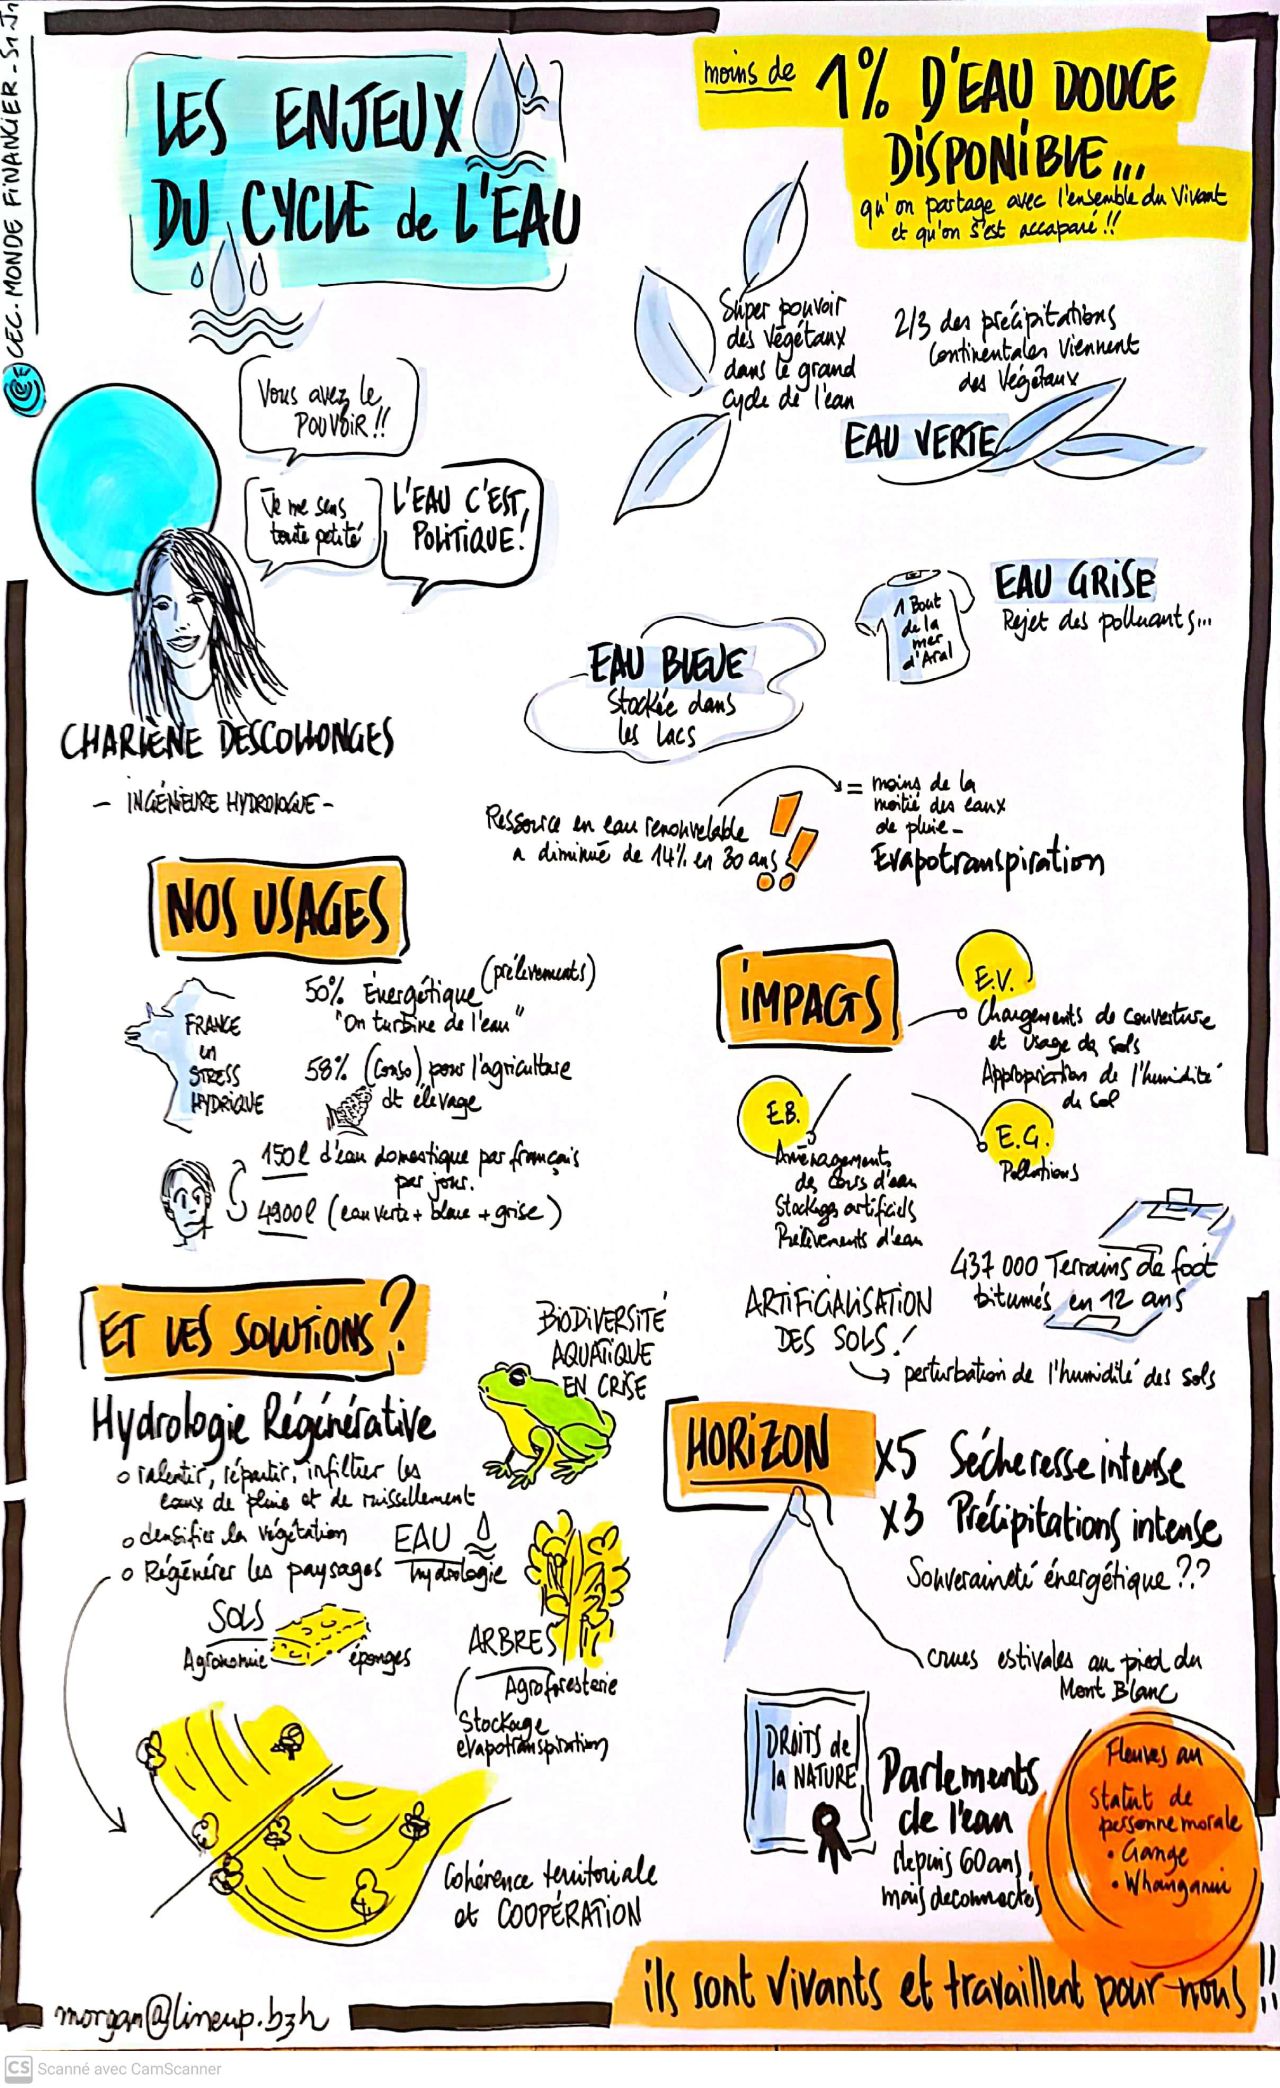 CEC. MONDE FINANCIER - S1 J1
LES ENJEUX
DU CYCLE de L'EAU
moins de 1% D'EAU DOUCE
DISPONIBLE...
qu'on partage avec l'ensemble du Vivant
et qu'on s'est accaparé !!
Super pouvoir
des végétaux
dans le grand
cycle de l'eau
2/3 des précipitations
Continentales Viennent
des Végétaux
EAU VERTE
Vous avez le
POUVOIR !!
Je me sens
toute petite
L'EAU C'EST
POLITIQUE !
CHARLÈNE DESCOLLONGES
- INGÉNIEURE HYDROLOGUE -
EAU GRISE
Rejet des polluants...
1 Bout
de la
mer
d'Aral
EAU BLEUE
Stockée dans
les lacs
Ressource en eau renouvelable
a diminué de 14% en 30 ans
= moins de la
moitié des eaux
de pluie -
Evapotranspiration
NOS USAGES
FRANCE
en
STRESS
HYDRIQUE
50% Énergétique (prélèvements)
"On turbine de l'eau"
58% (Conso) pour l'agriculture
et élevage
150l d'eau domestique par français
par jour.
4900l (eau verte + bleue + grise)
IMPACTS
E.V.
Changements de couverture
et usage des sols
Appropriation de l'humidité
du sol
E.B.
Aménagements
des cours d'eau
Stockages artificiels
Prélèvements d'eau
E.G.
Pollutions
437 000 Terrains de foot
bitumés en 12 ans
ARTIFICIALISATION
DES SOLS !
perturbation de l'humidité des sols
ET LES SOLUTIONS ?
BIODIVERSITÉ
AQUATIQUE
EN CRISE
Hydrologie Régénérative
o ralentir, répartir, infiltrer les
eaux de pluie et de ruissellement
o densifier la végétation
o Régénérer les paysages
EAU
hydrologie
SOLS
Agronomie
éponges
ARBRES
Agroforesterie
Stockage
evapotranspiration
Cohérence territoriale
et COOPÉRATION
HORIZON
X5 Sécheresse intense
X3 Précipitations intense
Souveraineté énergétique ??
crues estivales au pied du
Mont Blanc
DROITS de
la NATURE
Parlements
de l'eau
depuis 60 ans,
mais deconnectés
Fleuves au
statut de
personne morale
• Gange
• Whanganui
ils sont vivants et travaillent pour nous !!
morgan@lineup.bzh
CS Scanné avec CamScanner